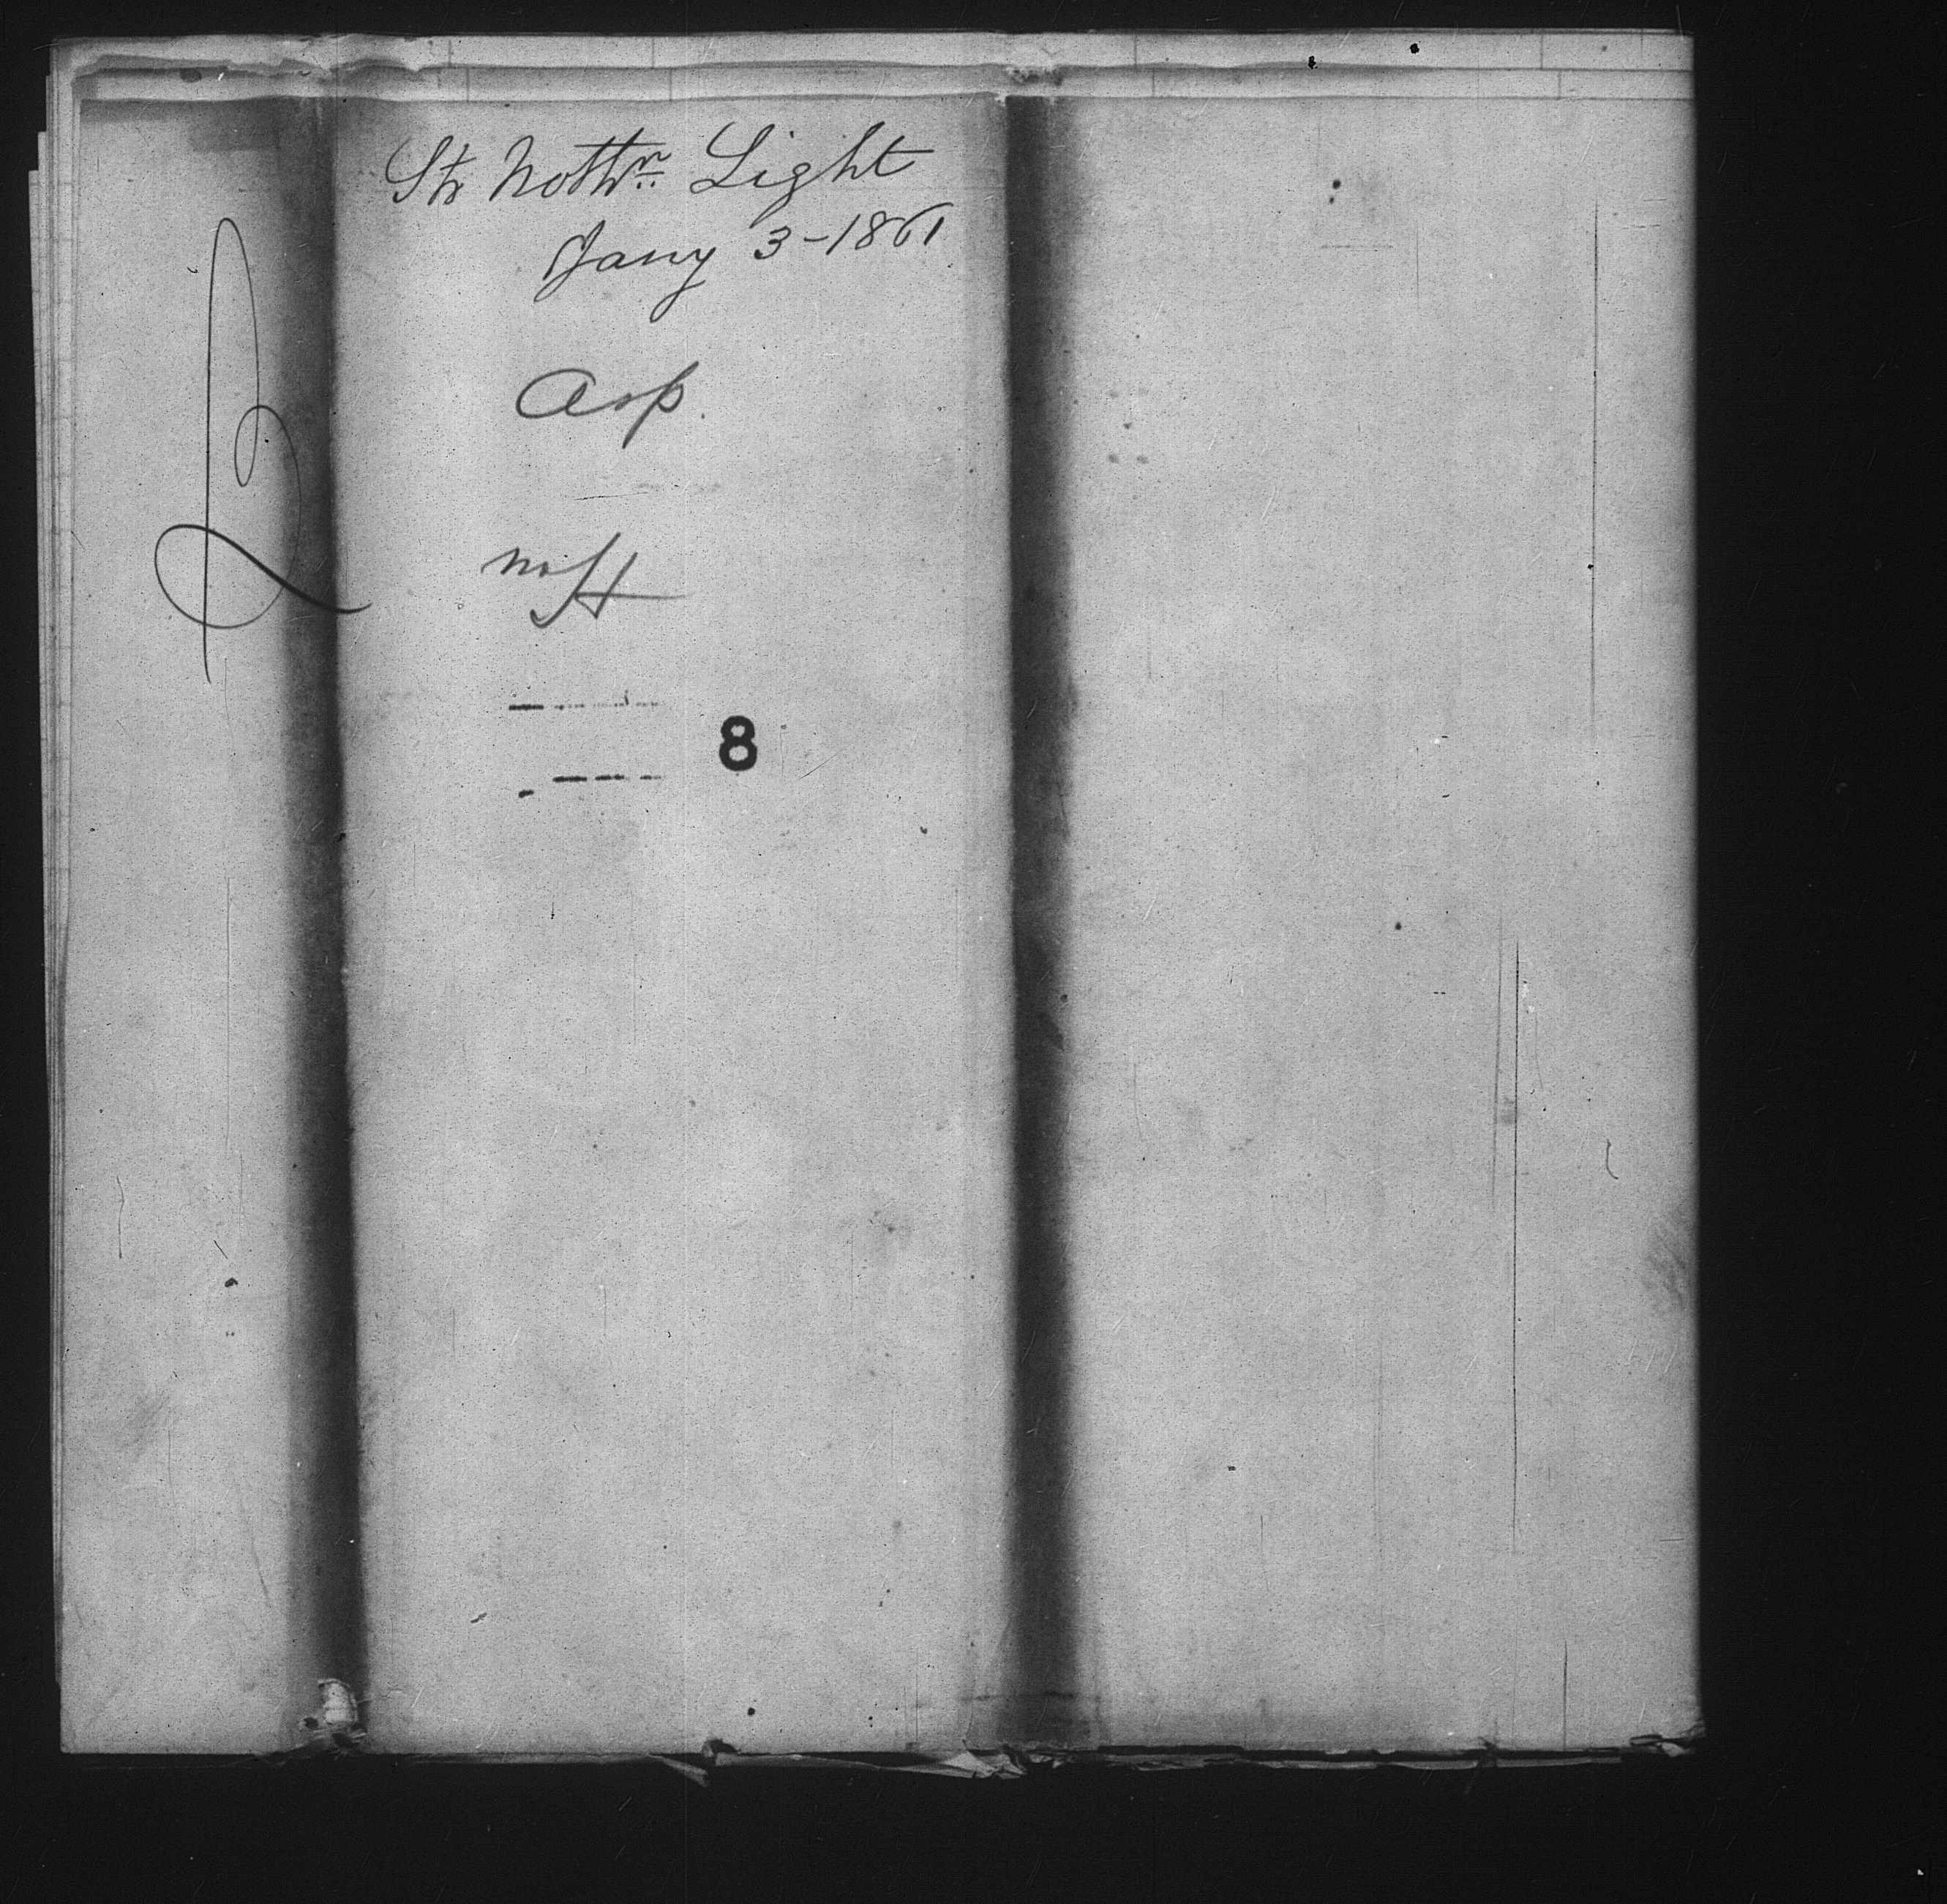 Str Nothrn Light
Jany 3-1861
Asp.
8